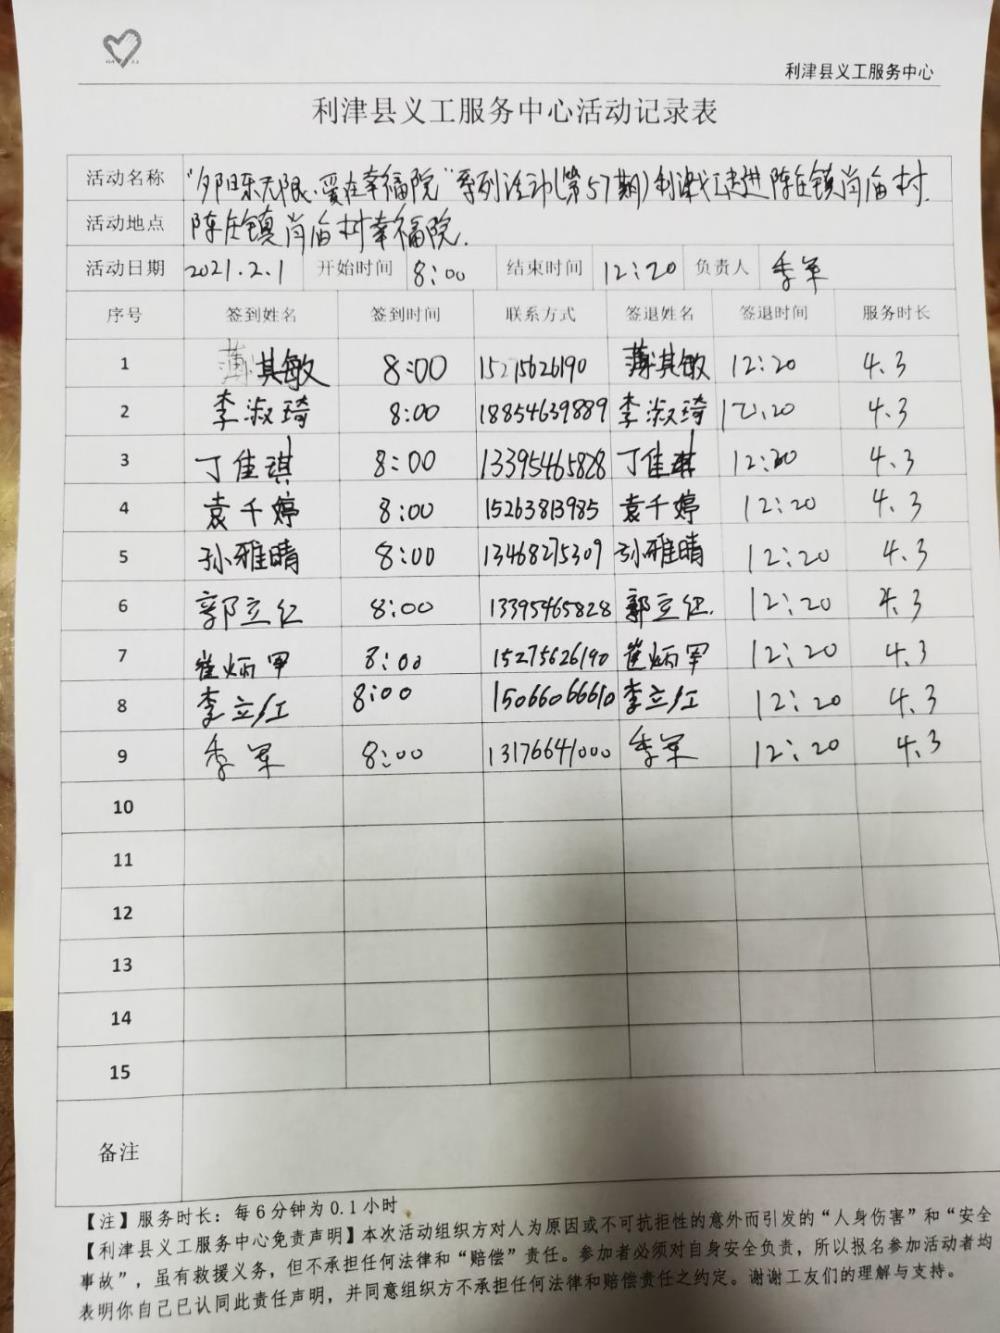 利津县义工服务中心
利津县义工服务中心活动记录表
活动名称 “夕阳乐无限·爱在幸福院”系列活动(第57期)利津义工走进陈庄镇肖庙村.
活动地点 陈庄镇肖庙村幸福院.
活动日期 2021.2.1 开始时间 8:00 结束时间 12:20 负责人 季军
序号 签到姓名 签到时间 联系方式 签退姓名 签退时间 服务时长
1 薄其敏 8:00 15275626190 薄其敏 12:20 4.3
2 李淑琦 8:00 18854639889 李淑琦 12:20 4.3
3 丁佳琪 8:00 13395465828 丁佳琪 12:20 4.3
4 袁千婷 8:00 15263813985 袁千婷 12:20 4.3
5 孙雅晴 8:00 13468275309 孙雅晴 12:20 4.3
6 郭立仁 8:00 13395465828 郭立仁. 12:20 4.3
7 崔炳罕 8:00 15275626190 崔炳罕 12:20 4.3
8 李立红 8:00 15066066610 李立红 12:20 4.3
9 季军 8:00 13176641000 季军 12:20 4.3
10
11
12
13
14
15
备注
【注】服务时长：每6分钟为0.1小时
【利津县义工服务中心免责声明】本次活动组织方对人为原因或不可抗拒性的意外而引发的“人身伤害”和“安全
事故”，虽有救援义务，但不承担任何法律和“赔偿”责任。参加者必须对自身安全负责，所以报名参加活动者均
表明你自己已认同此责任声明，并同意组织方不承担任何法律和赔偿责任之约定。谢谢工友们的理解与支持。